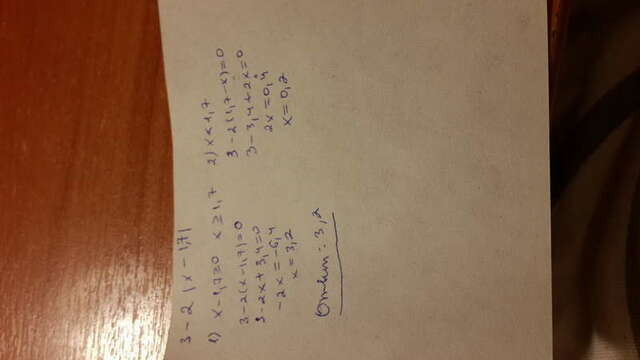 3 - 2 |x - 1,7|
1) x - 1,7 ≥ 0 x ≥ 1,7
3 - 2(x - 1,7) = 0
3 - 2x + 3,4 = 0
-2x = -6,4
x = 3,2
2) x < 1,7
3 - 2(1,7 - x) = 0
3 - 3,4 + 2x = 0
2x = 0,4
x = 0,2
Ответ: 3,2